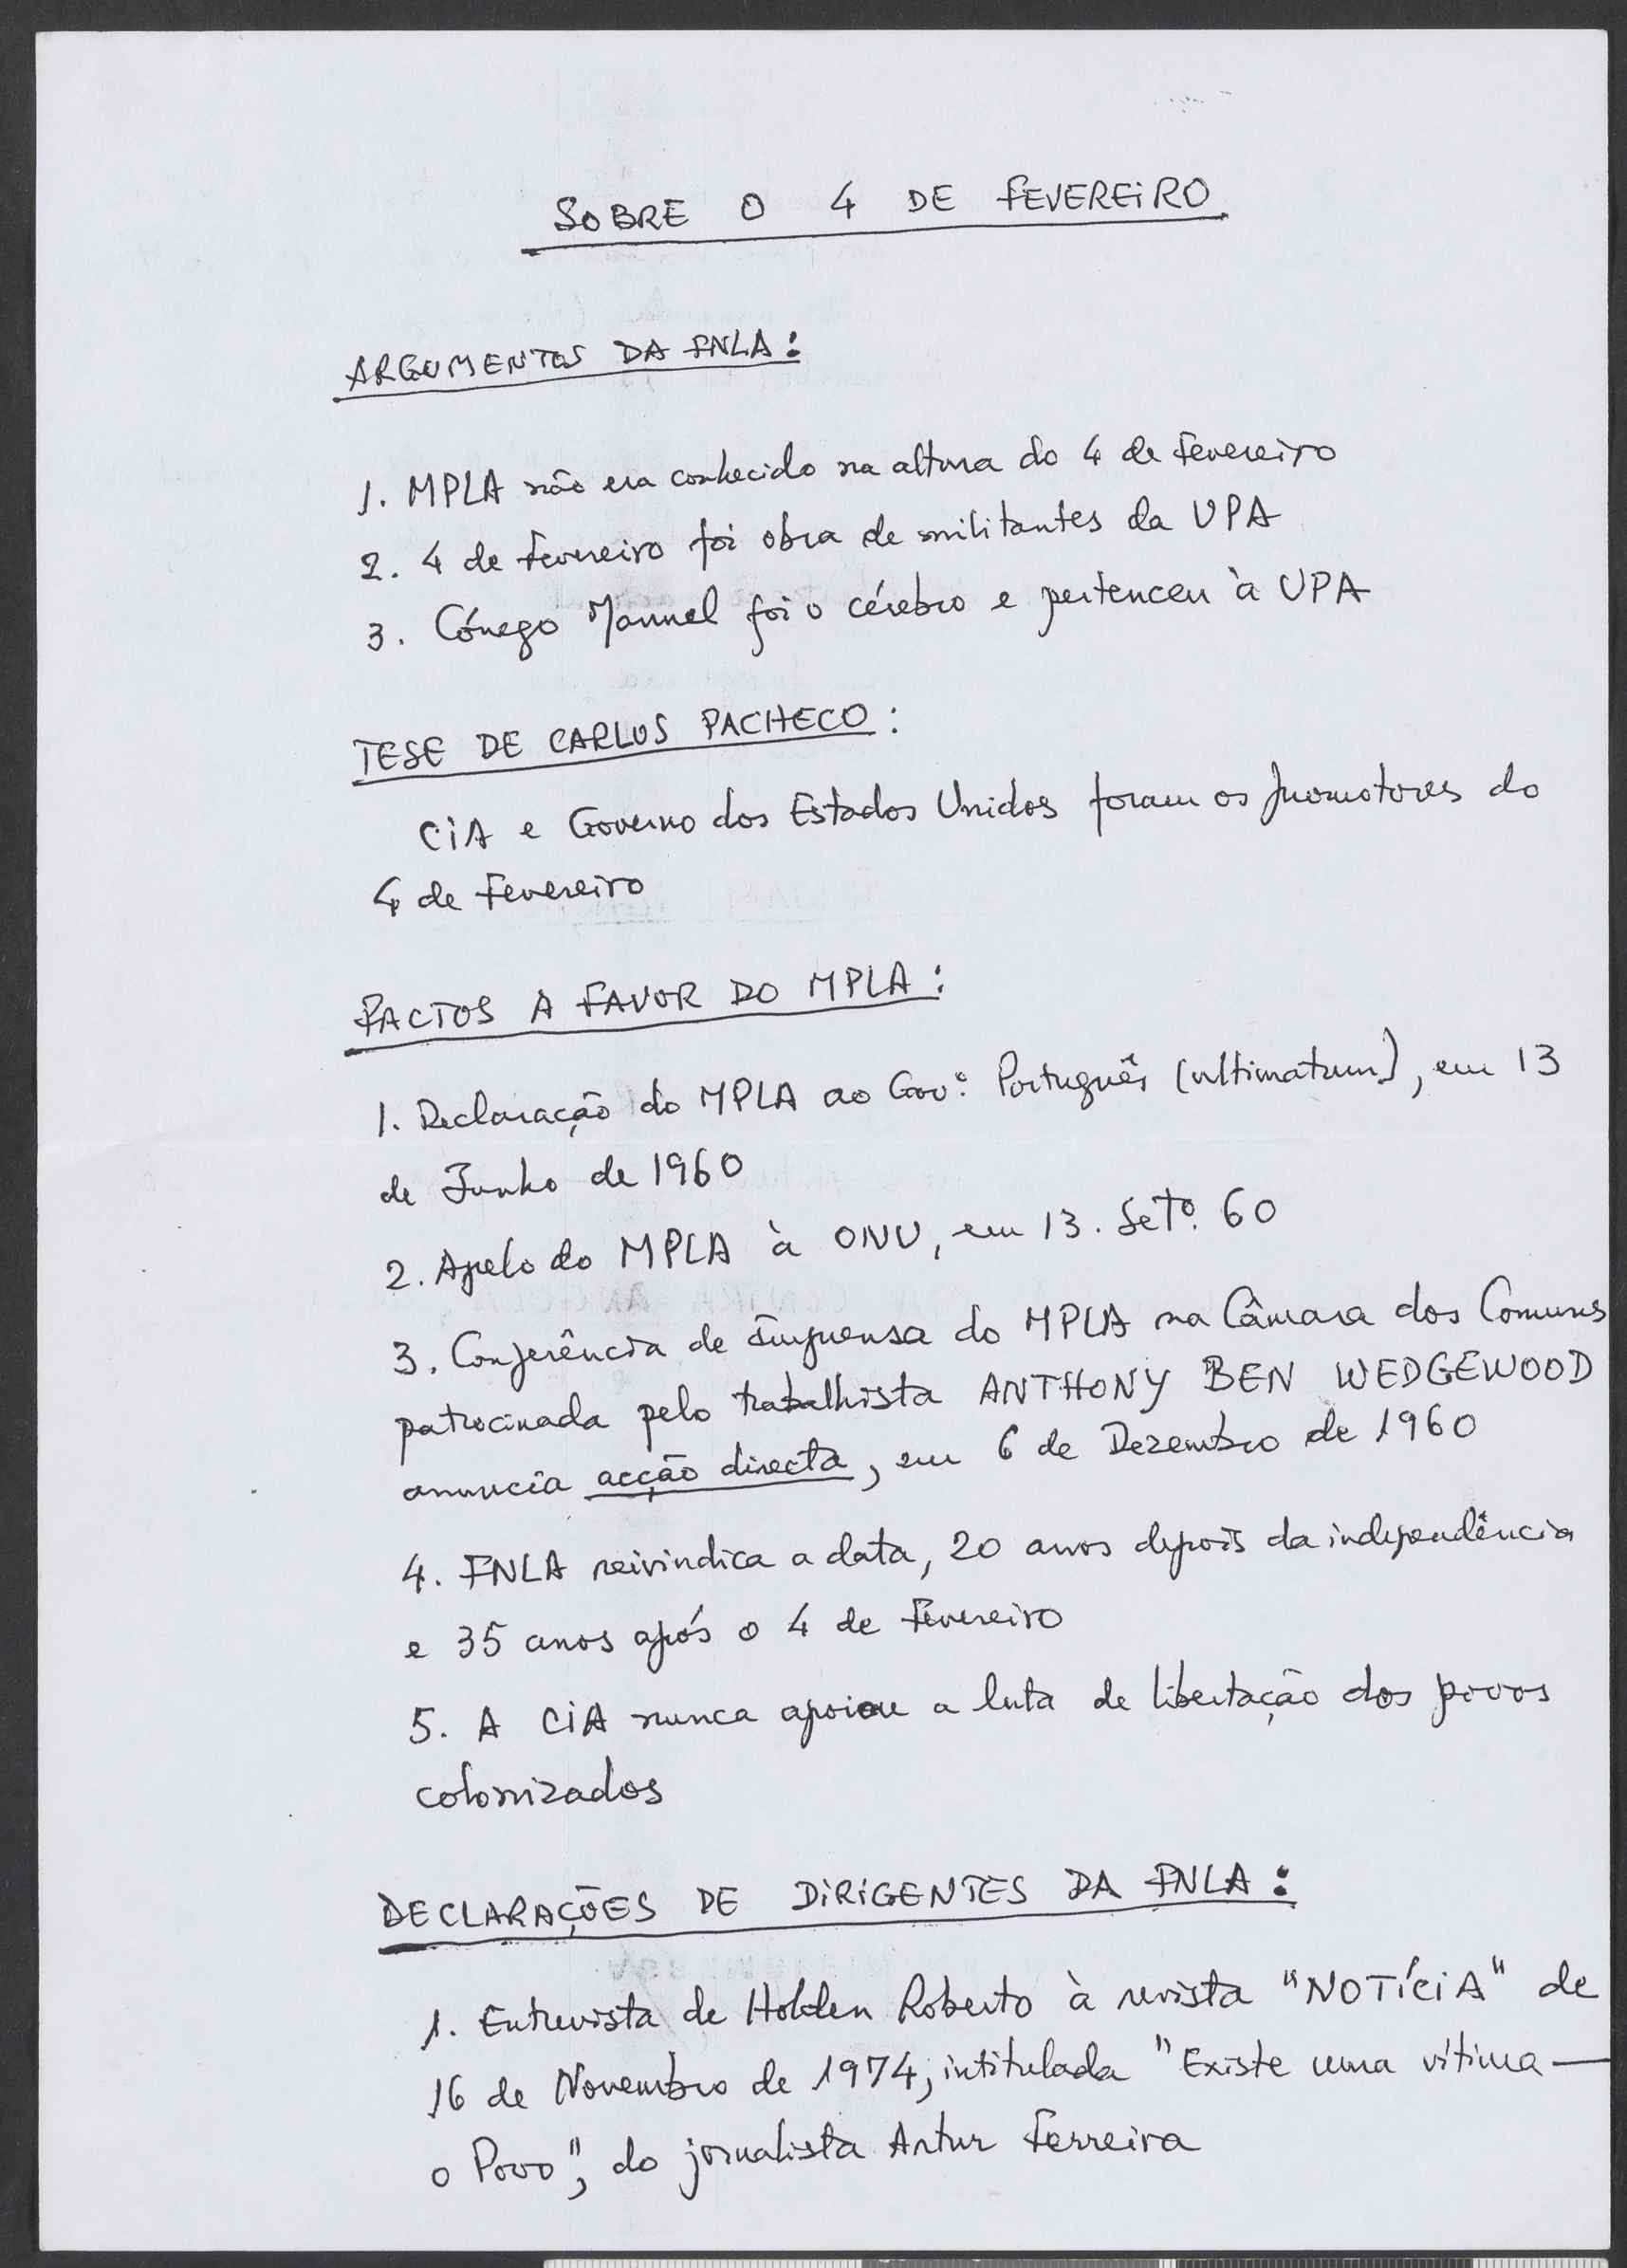 SOBRE O 4 DE FEVEREIRO
ARGUMENTOS DA FNLA:
1. MPLA não era conhecido na altura do 4 de Fevereiro
2. 4 de Fevereiro foi obra de militantes da UPA
3. Cónego Manuel foi o cérebro e pertenceu à UPA
TESE DE CARLOS PACHECO:
CIA e Governo dos Estados Unidos foram os promotores do
4 de Fevereiro
FACTOS A FAVOR DO MPLA:
1. Declaração do MPLA ao Gov.º Português (ultimatum), em 13
de Junho de 1960
2. Apelo do MPLA à ONU, em 13. Setº. 60
3. Conferência de Imprensa do MPLA na Câmara dos Comuns
patrocinada pelo trabalhista ANTHONY BEN WEDGEWOOD
anuncia acção directa, em 6 de Dezembro de 1960
4. FNLA reivindica a data, 20 anos depois da independência
e 35 anos após o 4 de Fevereiro
5. A CIA nunca apoiou a luta de libertação dos povos
colonizados
DECLARAÇÕES DE DIRIGENTES DA FNLA:
1. Entrevista de Holden Roberto à revista "NOTÍCIA" de
16 de Novembro de 1974, intitulada "Existe uma vítima —
o Povo", do jornalista Artur Ferreira